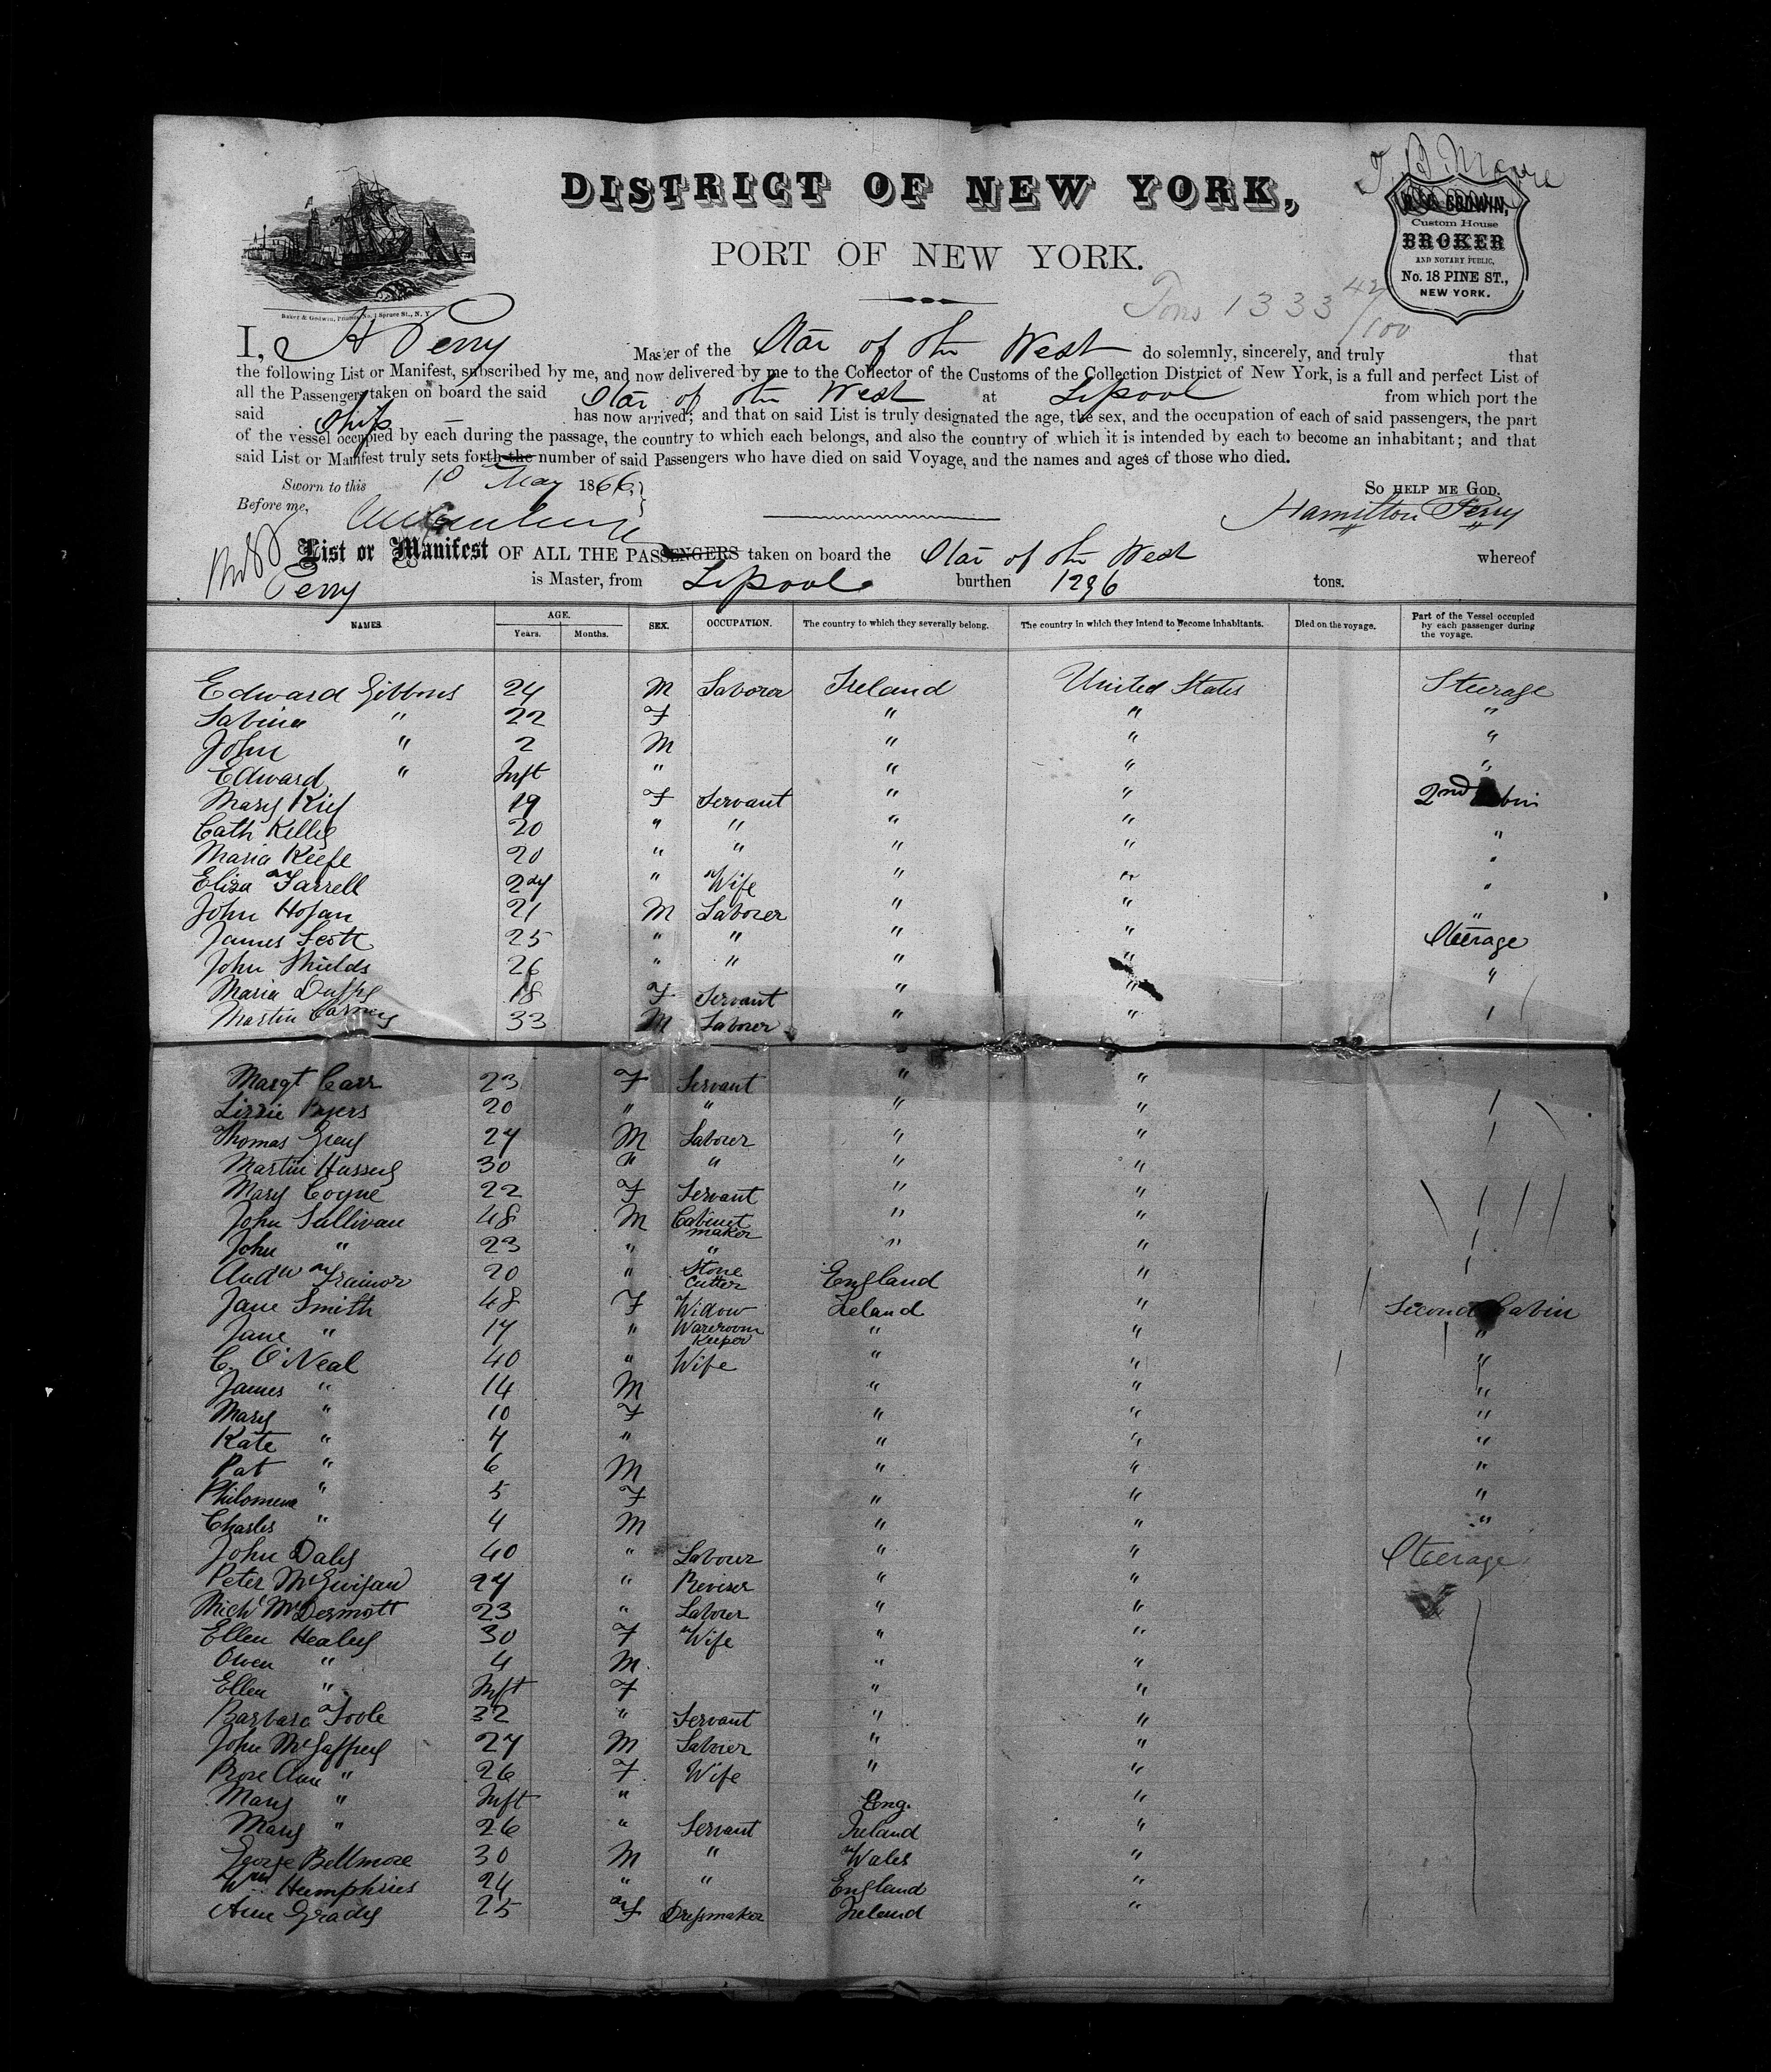 T. B. Moore
DISTRICT OF NEW YORK,
GODWIN,
Custom House
BROKER
AND NOTARY PUBLIC,
No. 18 PINE ST.,
NEW YORK.
PORT OF NEW YORK.
Tons 1333 42/100
Baker & Godwin, Printers, No. 1 Spruce St., N. Y.
I, H Perry Master of the Star of the West do solemnly, sincerely, and truly that
the following List or Manifest, subscribed by me, and now delivered by me to the Collector of the Customs of the Collection District of New York, is a full and perfect List of
all the Passengers taken on board the said Star of the West at Lipool from which port the
said Ship has now arrived; and that on said List is truly designated the age, the sex, and the occupation of each of said passengers, the part
of the vessel occupied by each during the passage, the country to which each belongs, and also the country of which it is intended by each to become an inhabitant; and that
said List or Manifest truly sets forth the number of said Passengers who have died on said Voyage, and the names and ages of those who died.
Sworn to this 10 May 1866, SO HELP ME GOD.
Before me, Hamilton Perry
List or Manifest OF ALL THE PASSENGERS taken on board the Star of the West whereof
Perry is Master, from Lipool burthen 1296 tons.
NAMES. AGE. Years. Months. SEX. OCCUPATION. The country to which they severally belong. The country in which they intend to become inhabitants. Died on the voyage. Part of the Vessel occupied by each passenger during the voyage.
Edward Gibbons 24 M Laborer Ireland United States Steerage
Sabina " 22 F " " "
John " 2 M " " "
Edward " Inft " " " "
Mary Kief 19 F Servant " " 2nd Cabin
Cath Kelly 20 " " " " "
Maria Keefe 20 " " " " "
Eliza Farrell 24 " Wife " " "
John Hogan 21 M Laborer " " "
James Scott 25 " " " " Steerage
John Shields 26 " " " " "
Maria Duffy 18 F Servant " "
Martin Carney 33 M Laborer " "
Margt Carr 23 F Servant " "
Lizzie Byers 20 " " " "
Thomas Grey 27 M Laborer " "
Martin Hussey 30 " " " "
Mary Coyne 22 F Servant " "
John Sullivan 48 M Cabinet maker " "
John " 23 " " " "
Andw Trainor 20 " Stone Cutter England "
Jane Smith 48 F Widow Ireland " Second Cabin
Jane " 17 " Wareroom Keeper " " "
C. O'Neal 40 " Wife " " "
James " 14 M " " "
Mary " 10 F " " "
Kate " 7 " " " "
Pat " 6 M " " "
Philomena " 5 F " " "
Charles " 4 M " " "
John Daly 40 " Laborer " " Steerage
Peter McGuigan 27 " Reviser " "
Michl McDermott 23 " Laborer " "
Ellen Healey 30 F Wife " "
Owen " 4 M " "
Ellen " Inft F " "
Barbara Toole 32 " Servant " "
John McGaffrey 27 M Laborer " "
Rose Ann " 26 F Wife " "
Mary " Inft " Eng. "
Mary " 26 " Servant Ireland "
George Bellmore 30 M " Wales "
Wm Humphries 24 " " England "
Ann Grady 25 F Dressmaker Ireland "